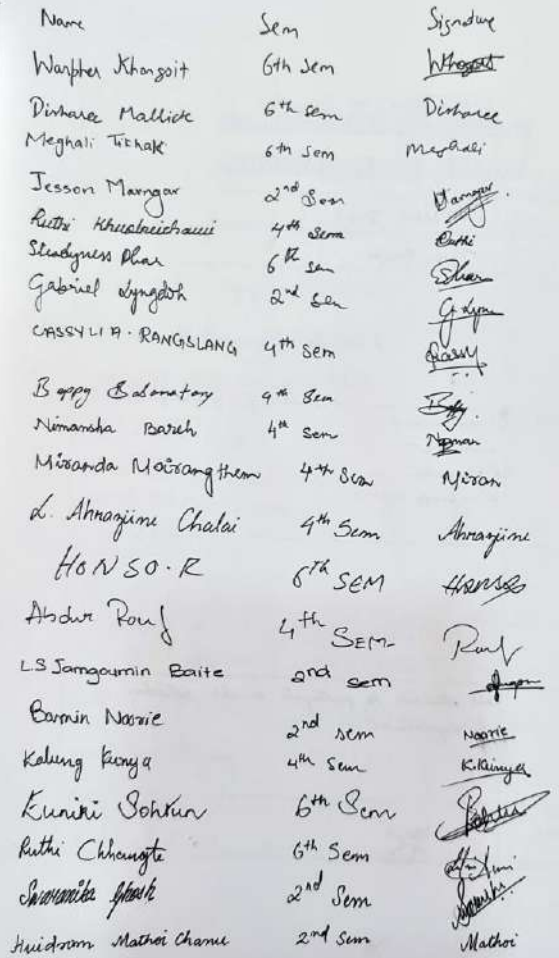 Name Sem Signature
Warpher Khongsit 6th Sem
Disharee Mallick 6th sem Disharee
Meghali Tirhak 6th Sem Meghali
Jesson Marngar 2nd Sem Marngar
Ruthi 4th Sem Ruthi
Steadyness Dhar 6th Sem Dhar
Gabriel Lyngdoh 2nd Sem G Lyn
CASSYLIA. RANGSLANG 4th Sem Cassy
Bappy Basumatary 4th Sem
Nimansha Bareh 4th Sem
Miranda Mairangthem 4th Sem Miran
L. Ahranjiine Chalai 4th Sem Ahranjiine
HONSO.R 6th SEM HONSO
Abdur Rouf 4th SEM Rouf
LS Jamgoumin Baite 2nd Sem
Barmin Noorie 2nd sem Noorie
Kalung Kunya 4th Sem K.Kunya
Euniki Sohtun 6th Sem Sohtun
Ruthi Chhangte 6th Sem
Swaranika Ghosh 2nd Sem
Huidrom Mathoi Chanu 2nd Sem Mathoi